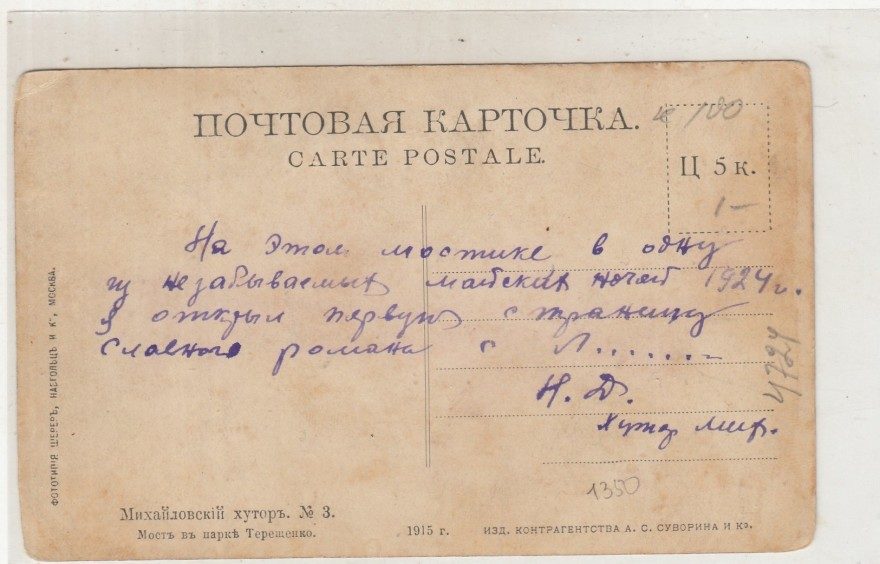 ПОЧТОВАЯ КАРТОЧКА.
CARTE POSTALE.
к 100
Ц 5 к.
1-
На этом мостике в одну
из незабываемых майских ночей 1924 г.
я открыл первую страницу
славного романа с Л.......
Н. Д.
Хутор Мих.
4724
1350
ФОТОТИПІЯ ШЕРЕРЪ, НАБГОЛЬЦЪ И Кº, МОСКВА.
Михайловскій хуторъ. № 3.
Мостъ въ паркѣ Терещенко.
1915 г.
ИЗД. КОНТРАГЕНТСТВА А. С. СУВОРИНА И Кº.